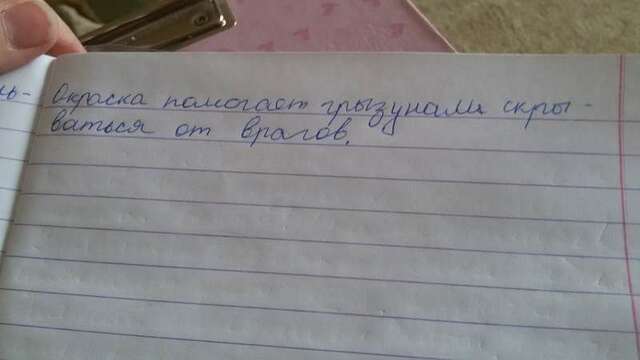 нь-
Окраска помогает грызунами скры-
ваться от врагов.